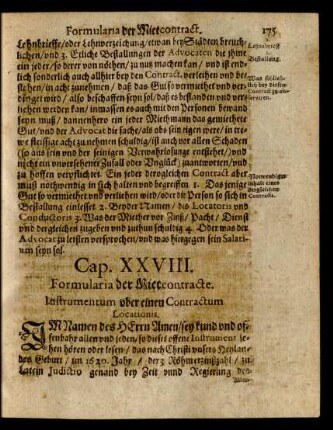 Formularia der Mietcontract. 175
Lehnbrieffe/oder Lehnverzeichung/etwan bey Städten breuch-
lichen/vnd 3. Etliche Bestallungen der Advocaten die jhme
ein jeder/so derer von nöthen/zu nutz machen kan/vnd ist end-
lich sonderlich auch allhier bey den Contract. verleihen vnd be-
stehen/in acht zunehmen/daß das Gut so vermietet vnd ver-
dinget wird/also beschaffen seyn sol/daß es bestanden vnd ver-
liehen werden kan/inmassen es auch mit den Personen bewand
seyn muß/dannenhero ein jeder Miethmann das gemietete
Gut/vnd der Advocat die sache/als obs sein eigen were/in tre-
we fleissige acht zu nehmen schuldig/ist auch vor allen Schaden
(so aus sein vnd der seinigen Verwahrlosunge entstehet/vnd
nicht ein vnversehener Zufall oder Vnglück) zuantworten/vnd
zu hoffen verpflichtet. Ein jeder derogleichen Contract aber
muß nothwendig in sich halten vnd begreiffen 1. Das jenige
Gut so vermietet vnd verliehen wird/oder die Person so sich in
Bestallung einlesset 2. Beyder Namen/des Locatoris vnd
Conductoris 3. Was der Miether vor Zinß/Pacht/Dienst
vnd dergleichen zugeben vnd zuthun schuldig 4. Oder was der
Advocat zu leisten versprochen/vnd was hiegegen sein Salari-
um seyn sol.
Lehnbrieff
Bestallung.
Was schließ-
lich bey diesen
Contract zu ob-
serviren.
Notwendiger
inhalt eines
jeglichen
Contracts.
Cap. XXVIII.
Formularia der Mietcontracte.
Instrumentum vber einen Contractum
Locationis.
IM Namen des HErrn Amen/sey kund vnd of-
fenbahr allen vnd jeden/so dieses offene Instrument se-
hen hören oder lesen/das nach Christi vnsers Heylan-
des Geburt/im 1620. Jahr/der 3 Römerzinßzahl/zu
Latein Judictio genand bey Zeit vnnd Regierung des